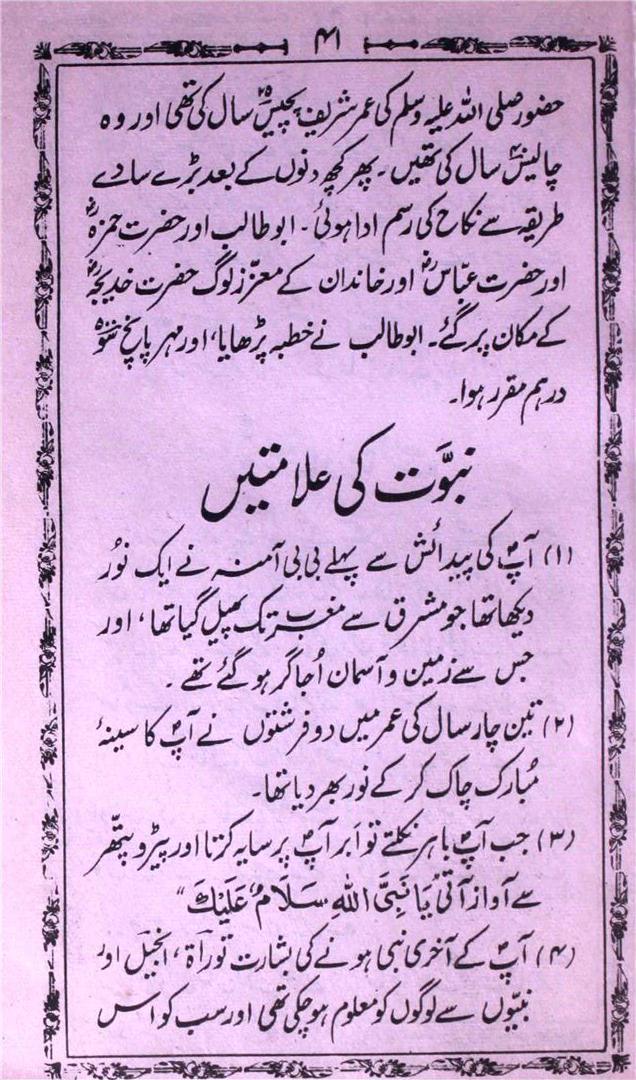 ۴۱
حضور صلی اللہ علیہ وسلم کی عمر شریف پچیس۲۵ سال کی تھی اور وہ
چالیس۴۰ سال کی تھیں۔ پھر کچھ دنوں کے بعد بڑے سادے
طریقہ سے نکاح کی رسم ادا ہوئی۔ ابو طالب اور حضرت حمزہؓ
اور حضرت عبّاسؓ اور خاندان کے معزّز لوگ حضرت خدیجہؓ
کے مکان پر گئے۔ ابو طالب نے خطبہ پڑھایا، اور مہر پانچ سو۵۰۰
درہم مقرر ہوا۔
نبوَّت کی علامتیں
(۱) آپؐ کی پیدائش سے پہلے بی بی آمنہ نے ایک نُور
دیکھا تھا جو مشرق سے مغرب تک پھیل گیا تھا، اور
جس سے زمین و آسمان اُجاگر ہو گئے تھے۔
(۲) تین چار سال کی عمر میں دو فرشتوں نے آپؐ کا سینۂ
مُبارک چاک کر کے نور بھر دیا تھا۔
(۳) جب آپؐ باہر نکلتے تو اَبر آپؐ پر سایہ کرتا اور پیڑ و پتّھر
سے آواز آتی یَا نَبِیَّ اللہِ سَلَامٌ عَلَیْکَ“
(۴) آپؐ کے آخری نبی ہونے کی بشارت توراۃ، انجیل اور
نبیّوں سے لوگوں کو معلوم ہو چکی تھی اور سب کو اس